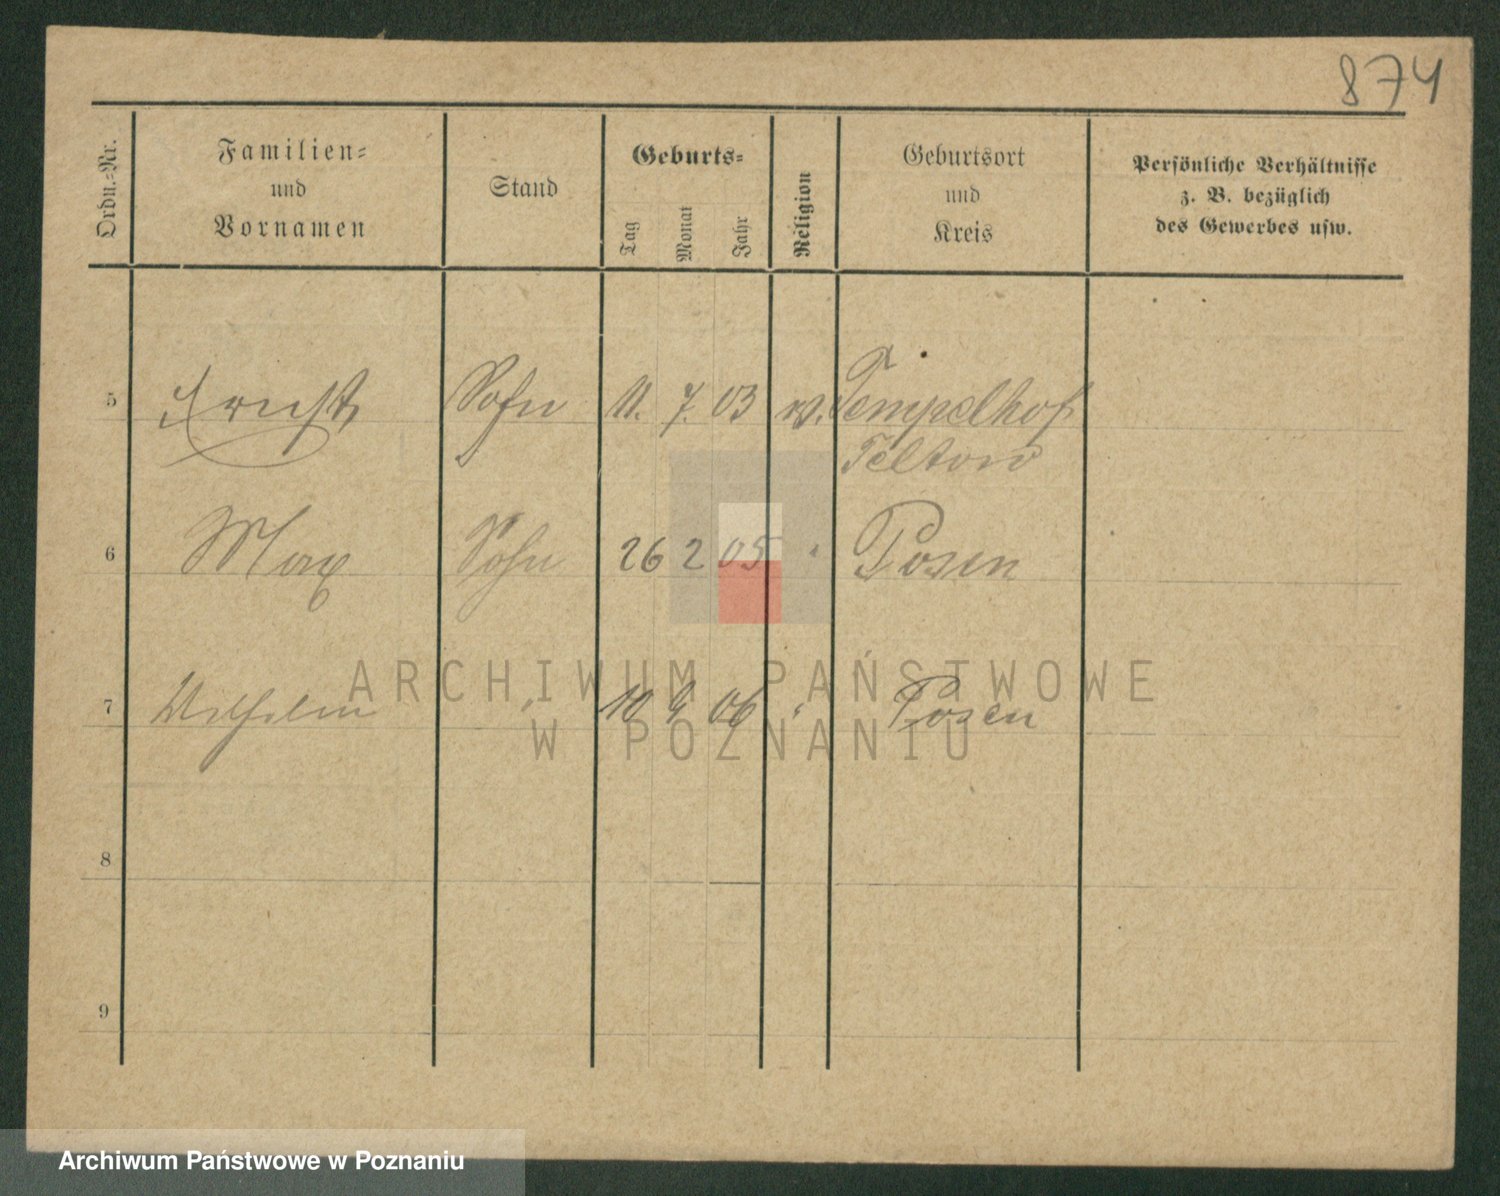 874
Ordn.-Nr.
Familien-
und
Vornamen
Stand
Geburts-
Tag
Monat
Jahr
Religion
Geburtsort
und
Kreis
Persönliche Verhältnisse
z. B. bezüglich
des Gewerbes usw.
5 Ernst Sohn 11. 7. 03 ev. Tempelhof
Teltow
6 Max Sohn 26 2 05 " Posen
7 Wilhelm " 10 9 06 " Posen
8
9
ARCHIWUM PAŃSTWOWE
W POZNANIU
Archiwum Państwowe w Poznaniu